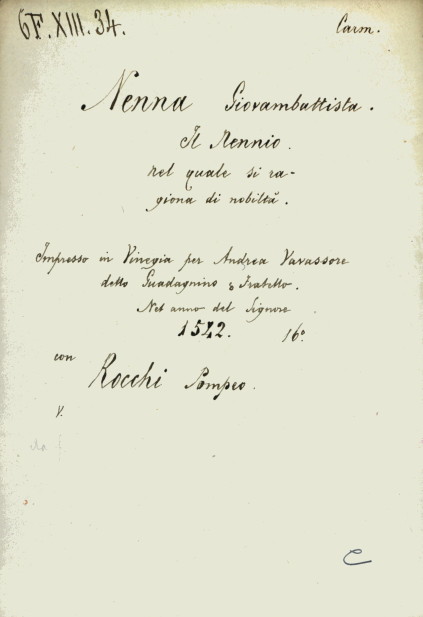 6F.XIII.34.
Carm.
Nenna Giovambattista.
Il Nennio.
nel quale si ra-
giona di nobiltà.
Impresso in Vinegia per Andrea Vavassore
detto Guadagnino & Fratello.
Nel anno del Signore
1542. 16º
con
Rocchi Pompeo.
V.
C